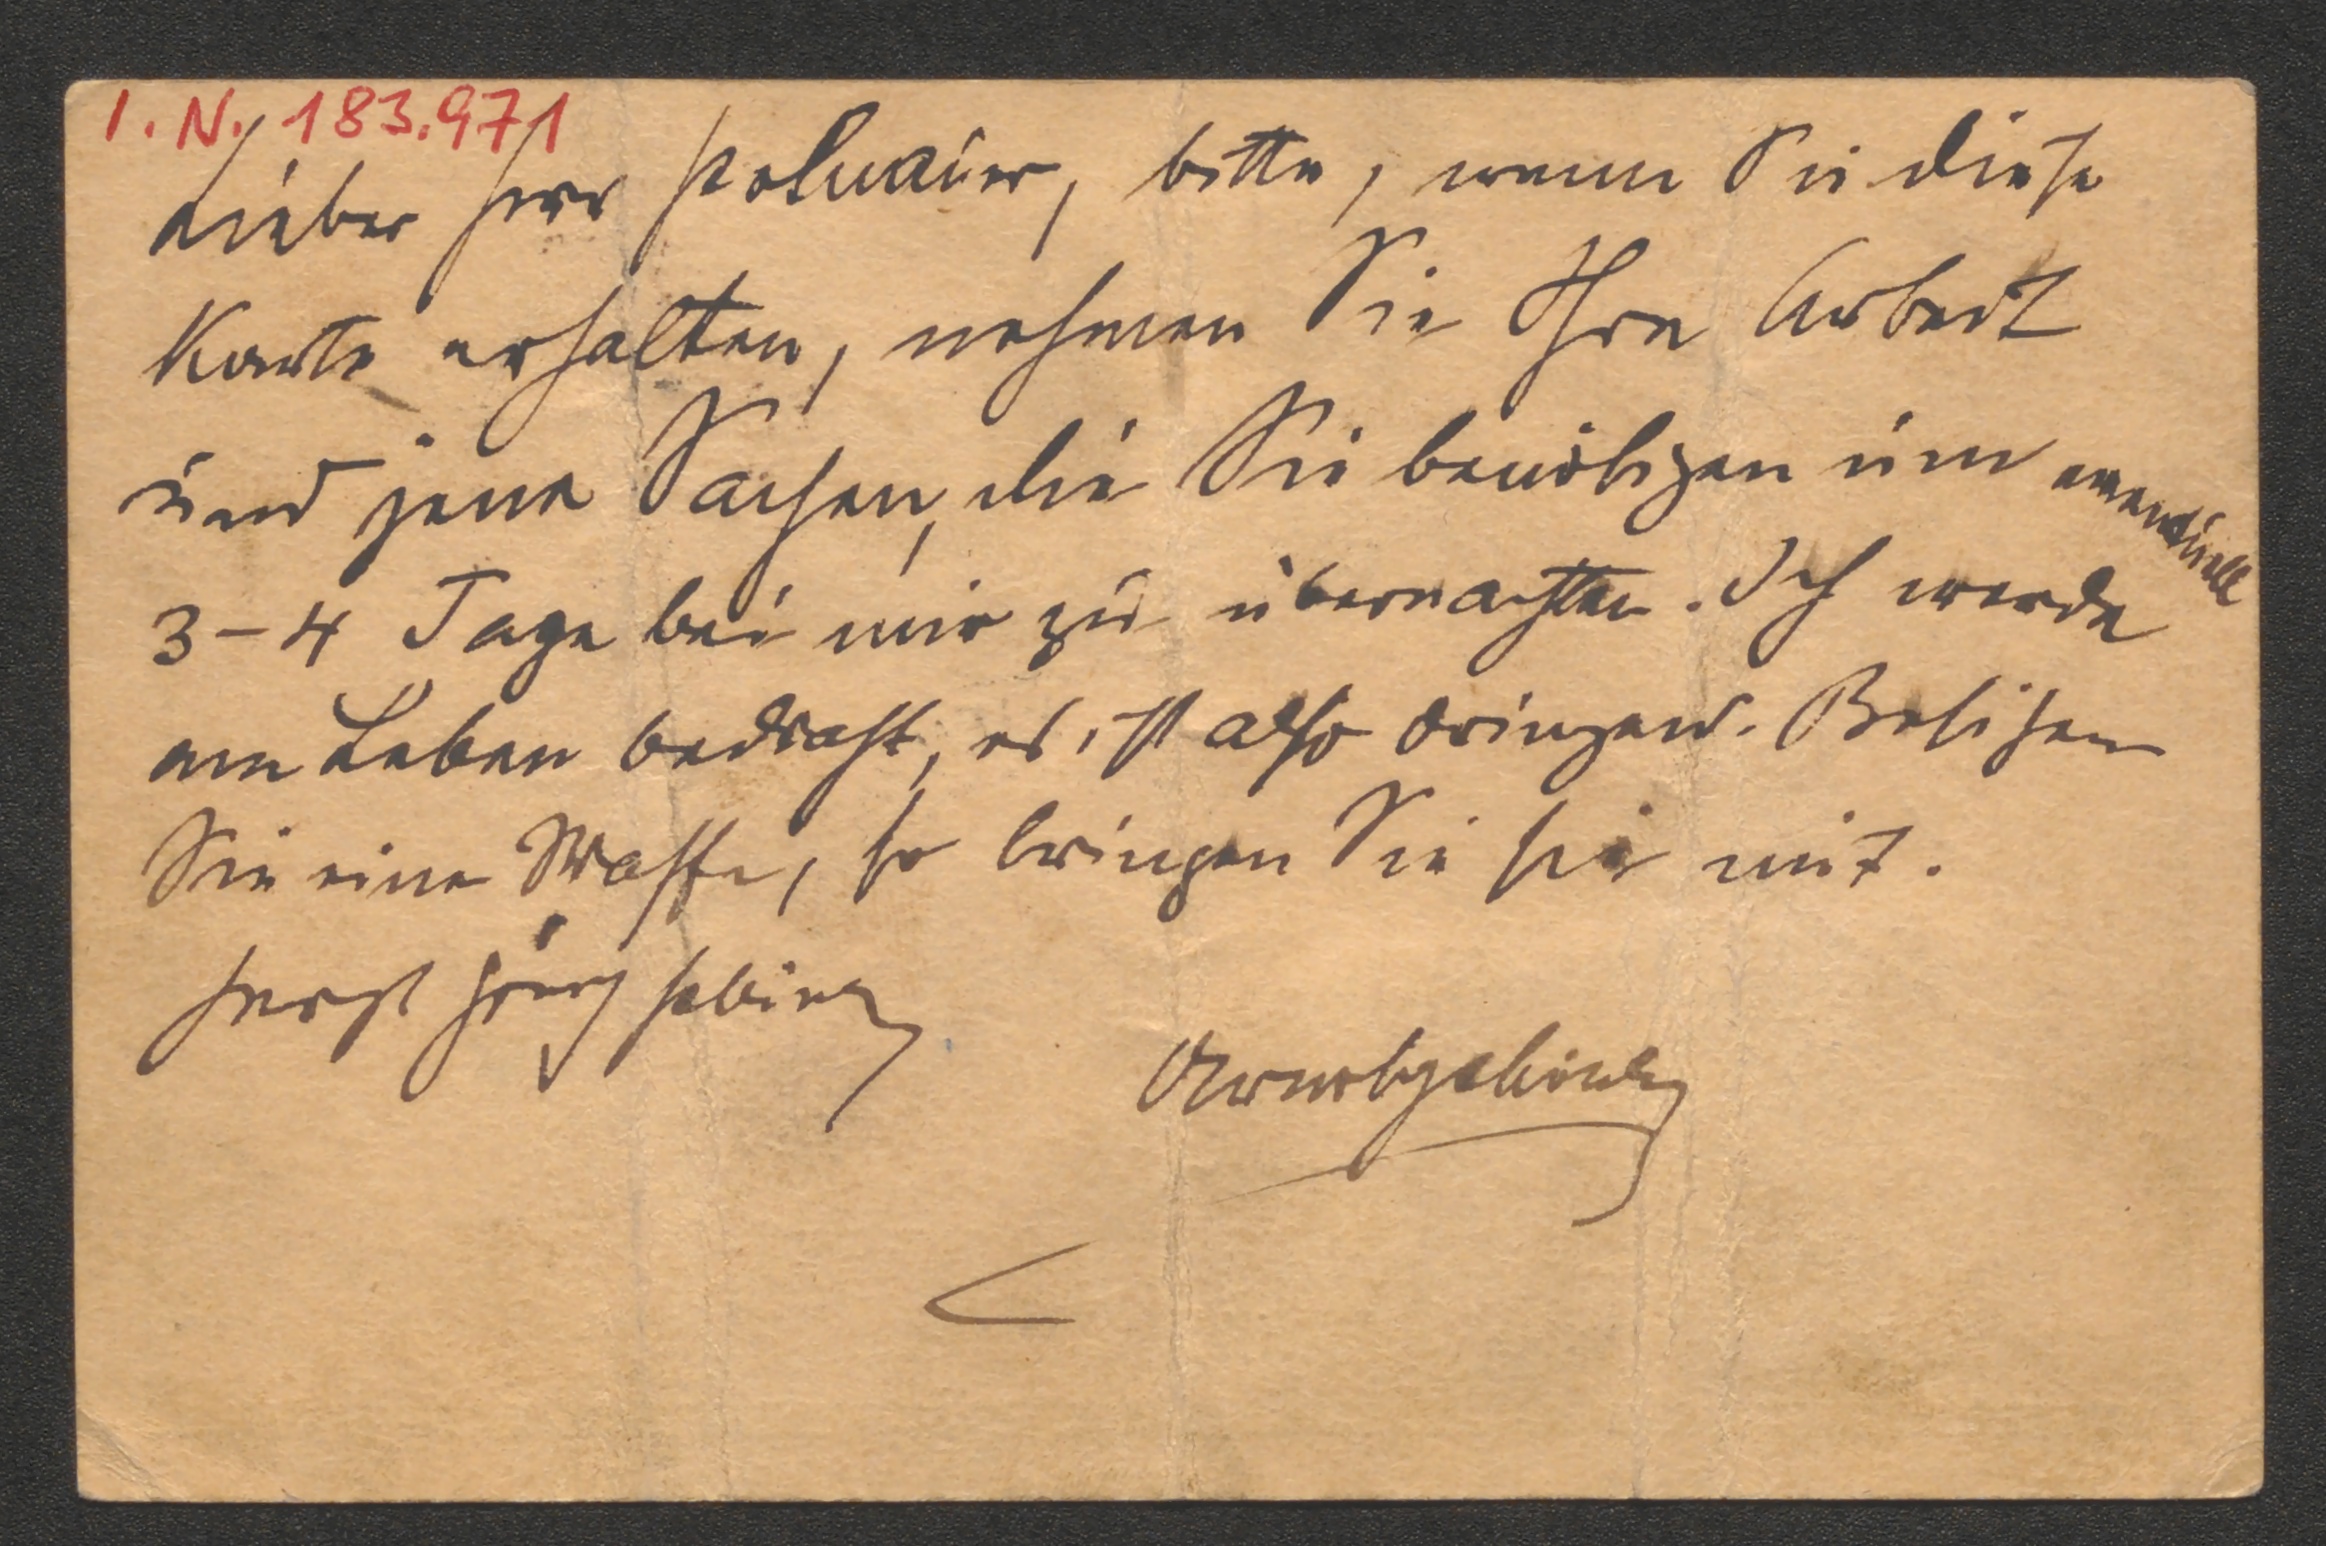 I. N. 183.971
Lieber Herr Polnauer, bitte, wenn Sie diese
Karte erhalten, nehmen Sie Ihre Arbeit
und jene Sachen, die Sie benötigen um eventuell
3-4 Tage bei mir zu übernachten. Ich werde
am Leben bedroht, es ist also dringend. Besitzen
Sie eine Waffe, so bringen Sie sie mit.
Herzl Gruß Schönberg
Arnold Schönberg